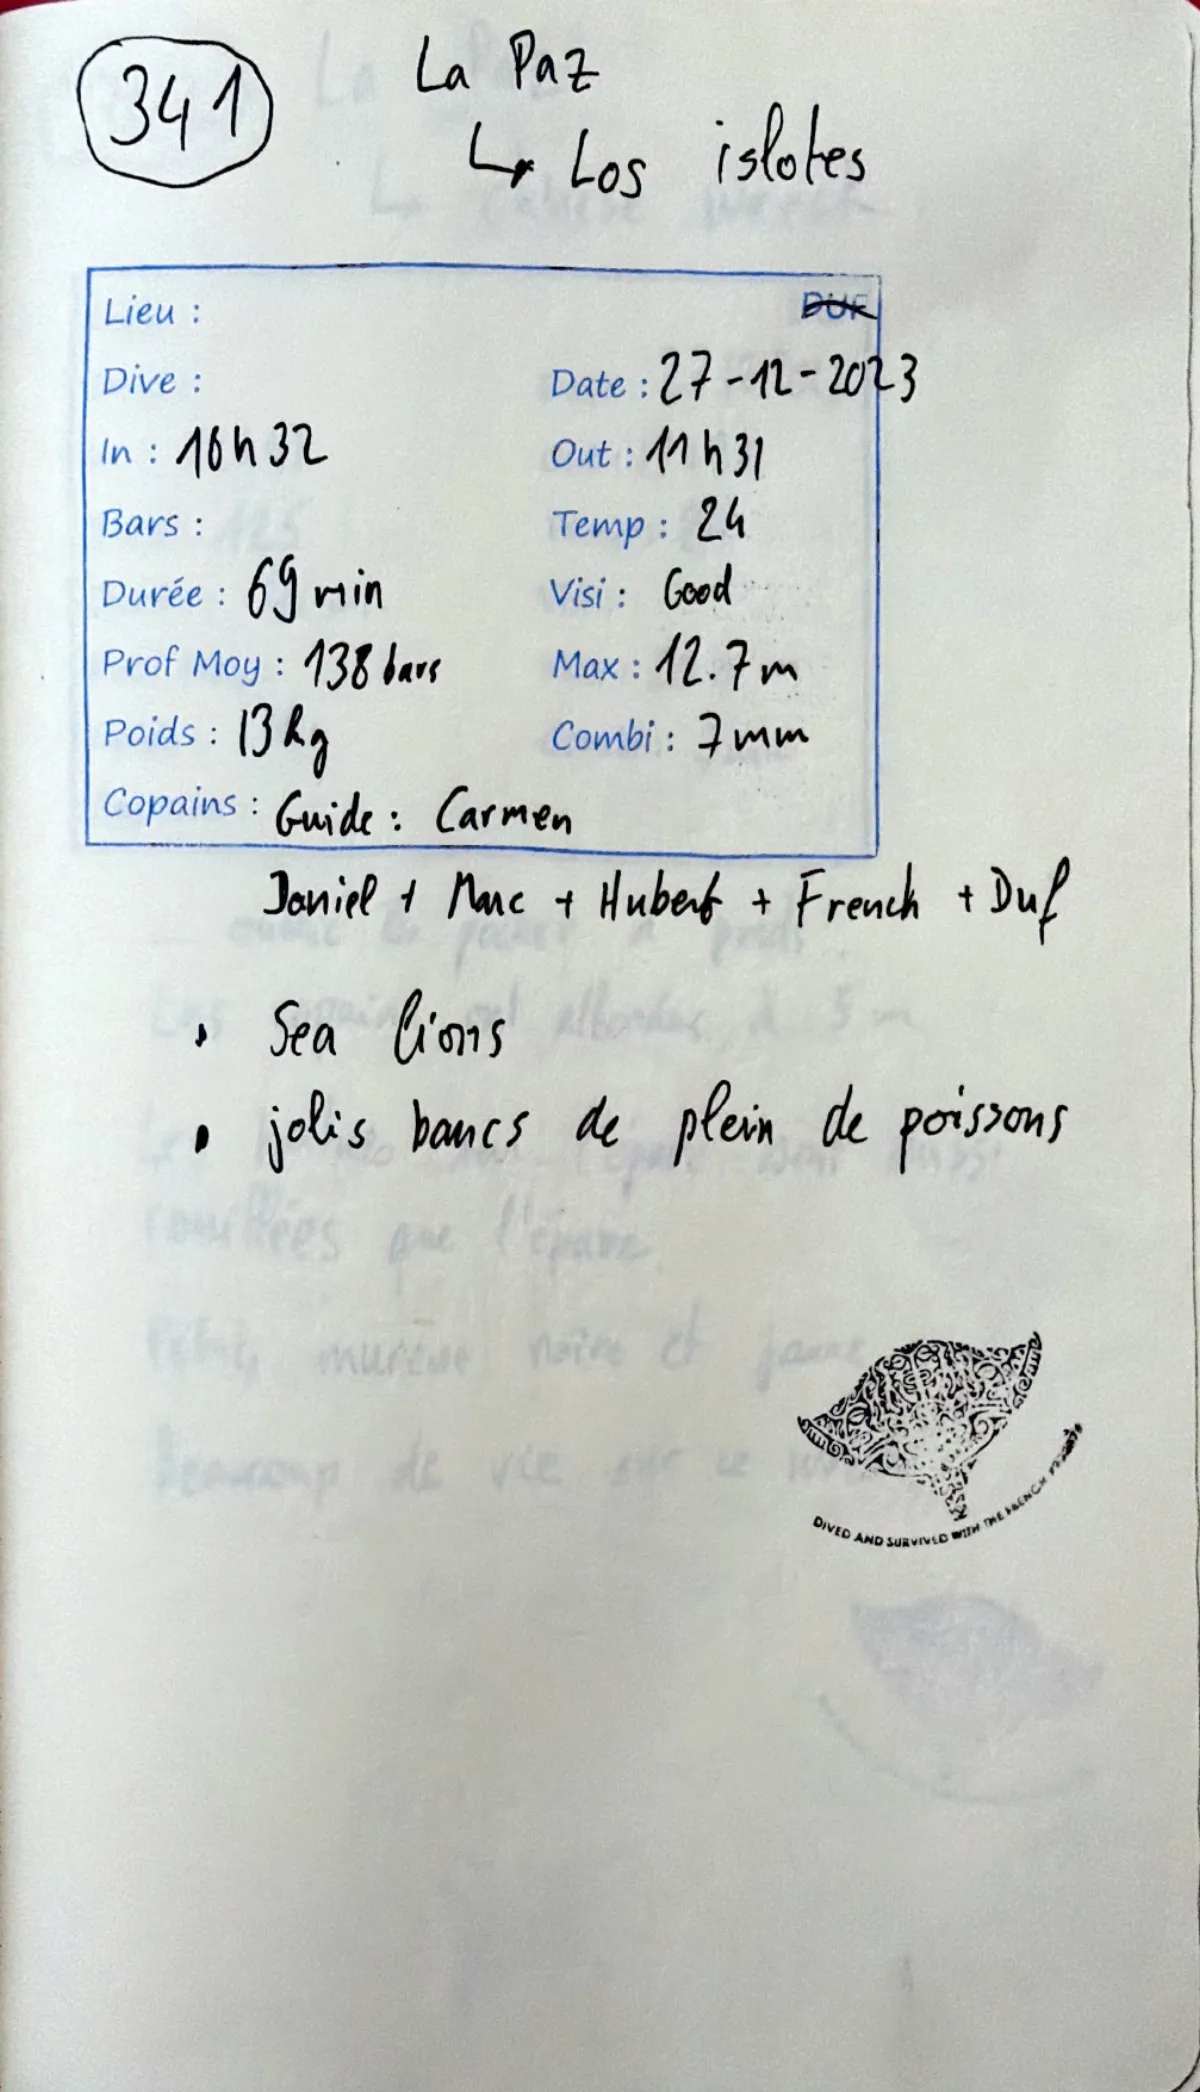 341
La Paz
↳ Los islotes
Lieu : DUF
Dive : Date : 27-12-2023
In : 10h32 Out : 11h31
Bars : Temp : 24
Durée : 69 min Visi : Good
Prof Moy : 138 bars Max : 12.7 m
Poids : 13 kg Combi : 7 mm
Copains : Guide : Carmen
Daniel + Marc + Hubert + French + Duf
• Sea lions
• jolis bancs de plein de poissons
DIVED AND SURVIVED WITH THE FRENCH